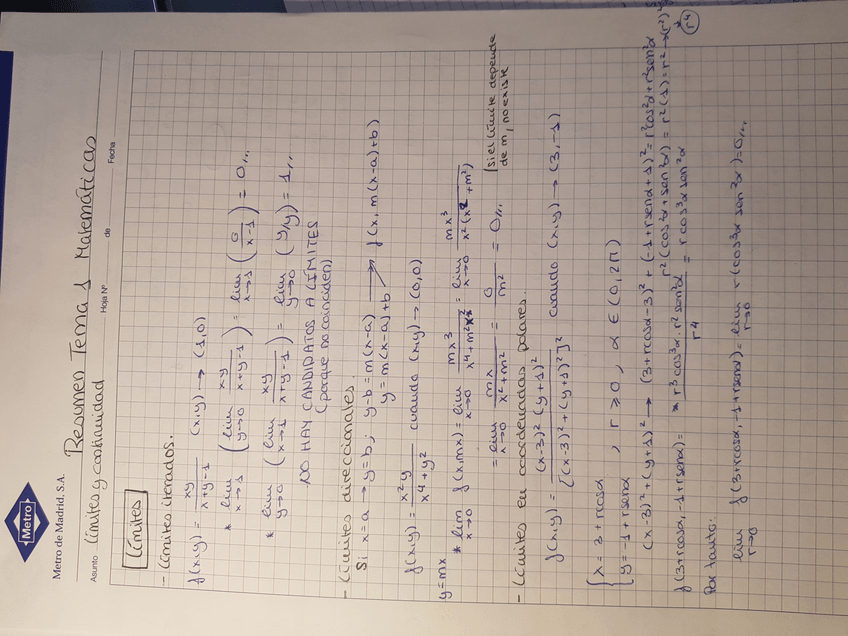 Metro
Metro de Madrid, S.A.
Resumen Tema 1 Matemáticas
Asunto Límites y continuidad Hoja Nº de Fecha
Límites
- Límites iterados.
f(x,y) = xy/(x+y-1) (x,y) → (1,0)
* lim x→1 (lim y→0 xy/(x+y-1)) = lim x→1 (0/(x-1)) = 0,,
* lim y→0 (lim x→1 xy/(x+y-1)) = lim y→0 (y/y) = 1,,
NO HAY CANDIDATOS A LÍMITES
(porque no coinciden)
- Límites direccionales.
Si x=a → y=b; y-b = m(x-a) → f(x, m(x-a)+b)
y = m(x-a)+b
f(x,y) = x²y/(x⁴+y²) cuando (x,y) → (0,0)
y=mx
* lim x→0 f(x,mx) = lim x→0 mx³/(x⁴+m²x²) = lim x→0 mx³/(x²(x²+m²))
= lim x→0 mx/(x²+m²) = 0/m² = 0,, Si el límite depende
de m, no existe
- Límites en coordenadas polares.
f(x,y) = (x-3)²(y+1)²/[(x-3)²+(y+1)²]² cuando (x,y) → (3,-1)
x = 3+rcosα
y = -1+rsenα , r ≥ 0, α ∈ (0,2π)
(x-3)²+(y+1)² → (3+rcosα-3)²+(-1+rsenα+1)² = r²cos²α+r²sen²α
r²(cos²α+sen²α) = r²(1) = r² → (r²)²
r⁴
f(3+rcosα, -1+rsenα) = r³cos³α·r²sen²α/r⁴ = rcos³α sen²α
Por tanto:
lim r→0 f(3+rcosα, -1+rsenα) = lim r→0 r(cos³α sen²α) = 0,,